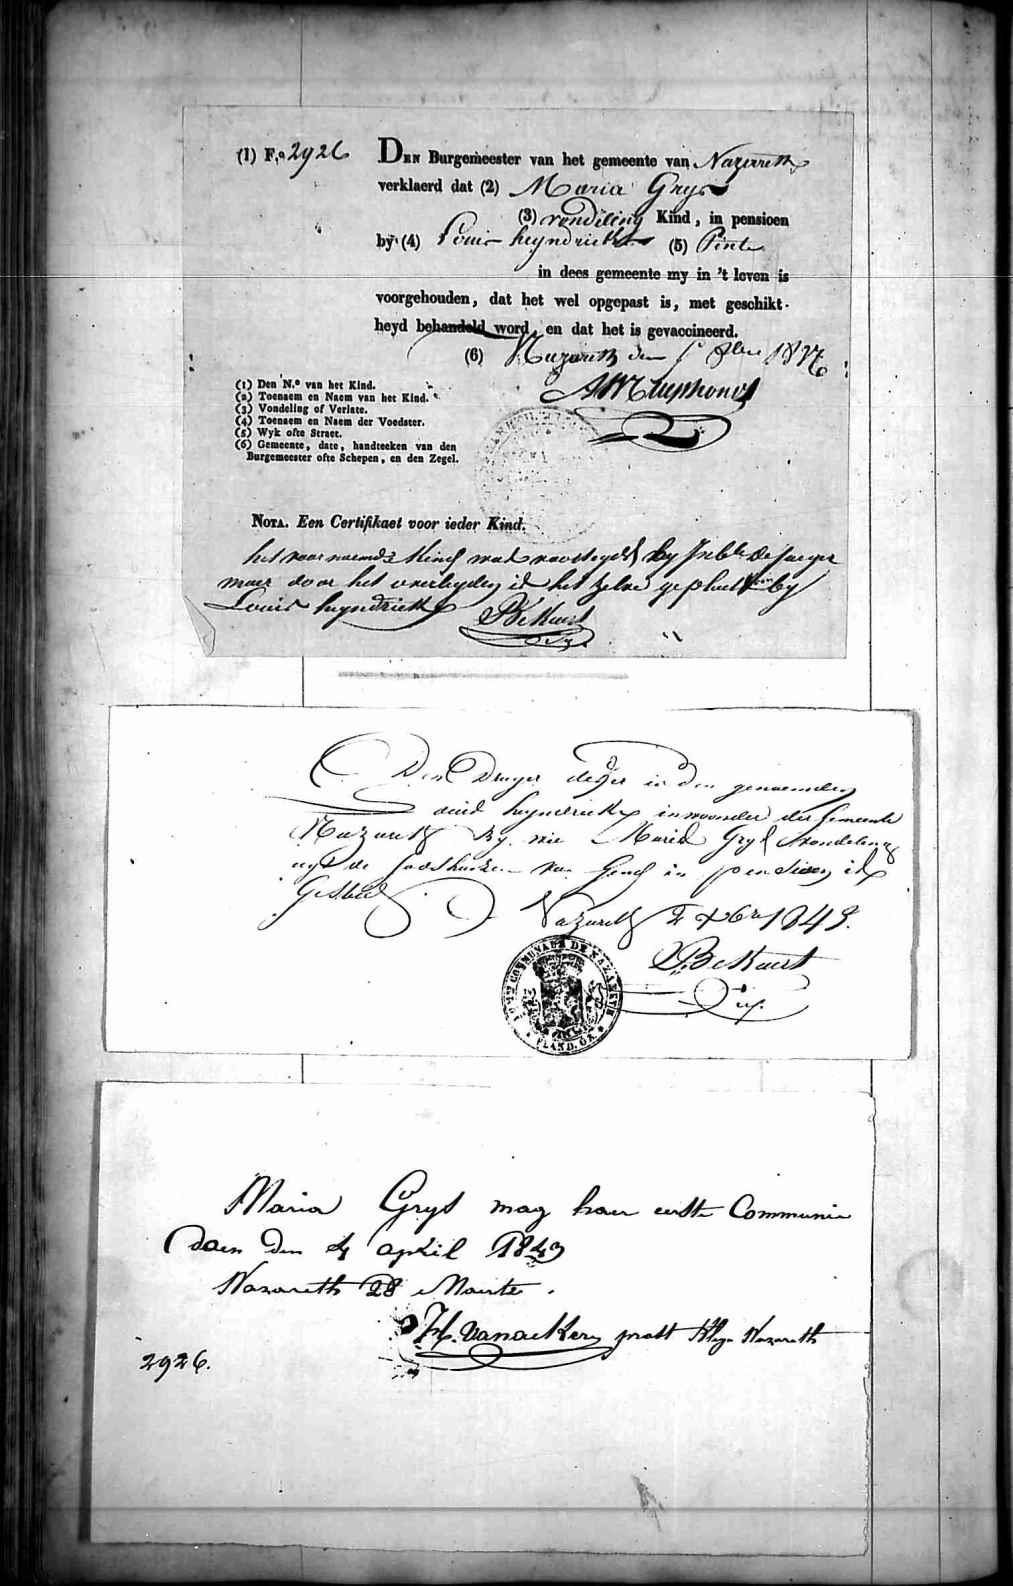 (1) F.º 2926 DEN Burgemeester van het gemeente van Nazareth
verklaerd dat (2) Maria Grys
(3) vondeling Kind, in pensioen
by (4) Louis heyndrickx (5) Pinte
in dees gemeente my in 't leven is
voorgehouden, dat het wel opgepast is, met geschikt-
heyd behandeld word, en dat het is gevaccineerd.
(6) Nazareth den
(1) Den N.º van het Kind.
(2) Toenaem en Naem van het Kind.
(3) Vondeling of Verlate.
(4) Toenaem en Naem der Voedster.
(5) Wyk ofte Straet.
(6) Gemeente, date, handteeken van den
Burgemeester ofte Schepen, en den Zegel.
NOTA. Een Certifikaet voor ieder Kind.
het voornoemde Kind was by de Jaeger
maer door het overlyden is het zelve geplaetst by
Louis heyndrickx
Bekaert
Den Drager dezer is den genoemden
heyndrickx inwoonder der Gemeente
Nazareth by wie Maria Grys vondeling
uyt de Godshuizen van Gend in pensioen is
Gesteld
Nazareth 2 Xber 1843.
Bekaert
COMMUNAUX DE NAZARETH
FLAND. OR.
Maria Grys mag haer eerste Communie
doen den 4 april 1843
Nazareth 28 Maerte.
H. Vanacker Nazareth
2926.